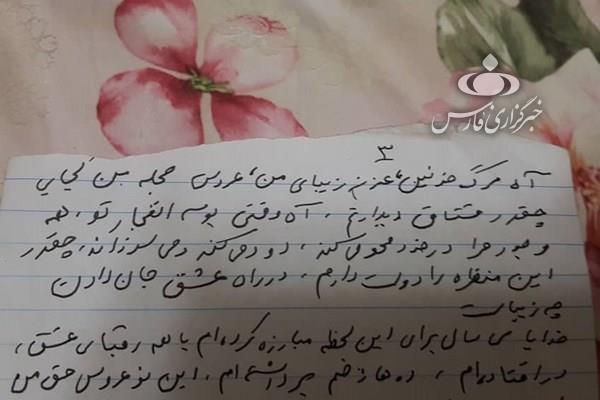 خبرگزاری فارس
۳
آه مرگ خونین، عزیز زیبای من، عروس حجله من کجایی
چقدر مشتاق دیدارتم، آه وقتی بوسه انفجار تو، همه
وجود مرا در خود محو می‌کند، دود می‌کند و می‌سوزاند، چقدر
این منظره را دوست دارم، در راه عشق جان دادن
چه زیباست
خدایا سی سال برای این لحظه مبارزه کرده‌ام با همه رقبای عشق،
در افتاده‌ام، ده‌ها زخم برداشته‌ام، این نو عروس حق من